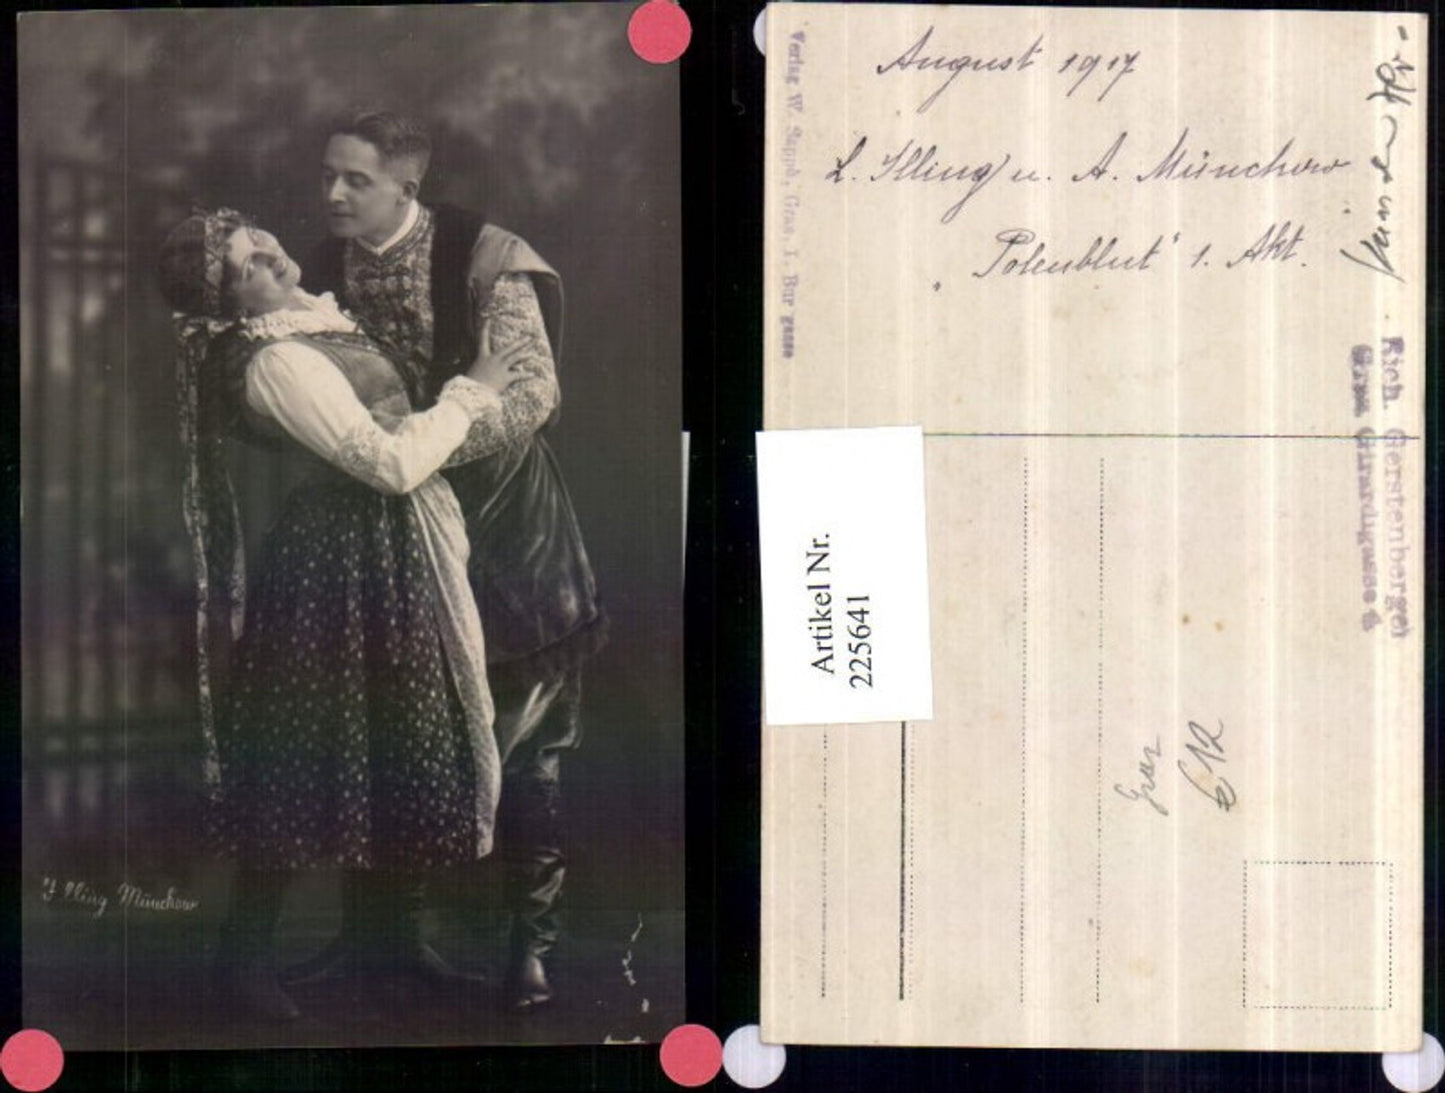 Illing Münchow
August 1917
L. Illing u. A. Münchow
"Polenblut" 1. Akt.
Verlag W. Seppd, Graz, I. Bur gasse
Rich. Gerstenberger
Graz Girardigasse 6
Artikel Nr.
225641
Graz
€12